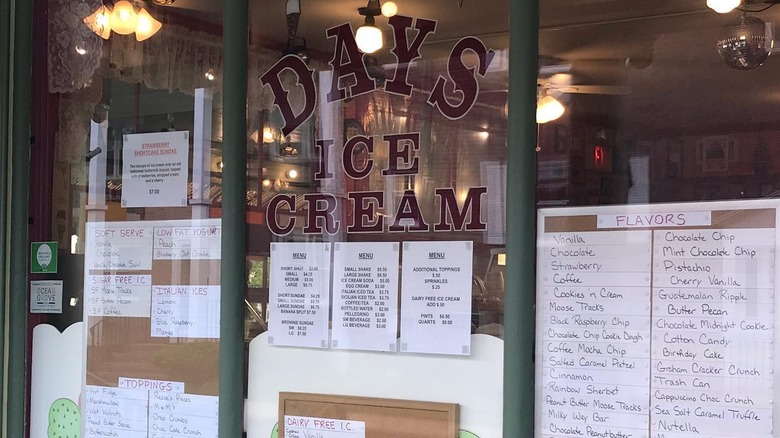 DAYS
ICE
CREAM
STRAWBERRY
SHORTCAKE SUNDAE
$7.00
SOFT SERVE
Vanilla
Chocolate
LOW FAT YOGURT
Peach
SUGAR FREE I.C.
SF Butter Pecan
ITALIAN ICES
Lemon
Cherry
Blue Raspberry
Mango
TOPPINGS
Hot Fudge
Marshmallow
Wet Walnuts
Butterscotch
Reese's Pieces
M & M'S
Oreo Crumbs
MENU
SHORT SHOT
SMALL
MEDIUM
LARGE
SHORT SUNDAE
SMALL SUNDAE
LARGE SUNDAE
BANANA SPLIT
BROWNIE SUNDAE
MENU
SMALL SHAKE
LARGE SHAKE
ICE CREAM SODA
EGG CREAM
ITALIAN ICED TEA
SICILIAN ICED TEA
COFFEE/TEA
BOTTLED WATER
PELLEGRINO
SM BEVERAGE
LG BEVERAGE
MENU
ADDITIONAL TOPPINGS
$.50
SPRINKLES
$.25
DAIRY FREE ICE CREAM
ADD $.50
PINTS $6.50
QUARTS $9.00
DAIRY FREE I.C.
Vanilla
FLAVORS
Vanilla
Chocolate
Strawberry
Coffee
Cookies n Cream
Moose Tracks
Black Raspberry Chip
Chocolate Chip Cookie Dough
Coffee Mocha Chip
Salted Caramel Pretzel
Cinnamon
Rainbow Sherbet
Peanut Butter Moose Tracks
Milky Way Bar
Chocolate Peanutbutter
Chocolate Chip
Mint Chocolate Chip
Pistachio
Cherry Vanilla
Guatemalan Ripple
Butter Pecan
Chocolate Midnight Cookie
Cotton Candy
Birthday Cake
Graham Cracker Crunch
Trash Can
Cappuccino Choc Crunch
Sea Salt Caramel Truffle
Nutella